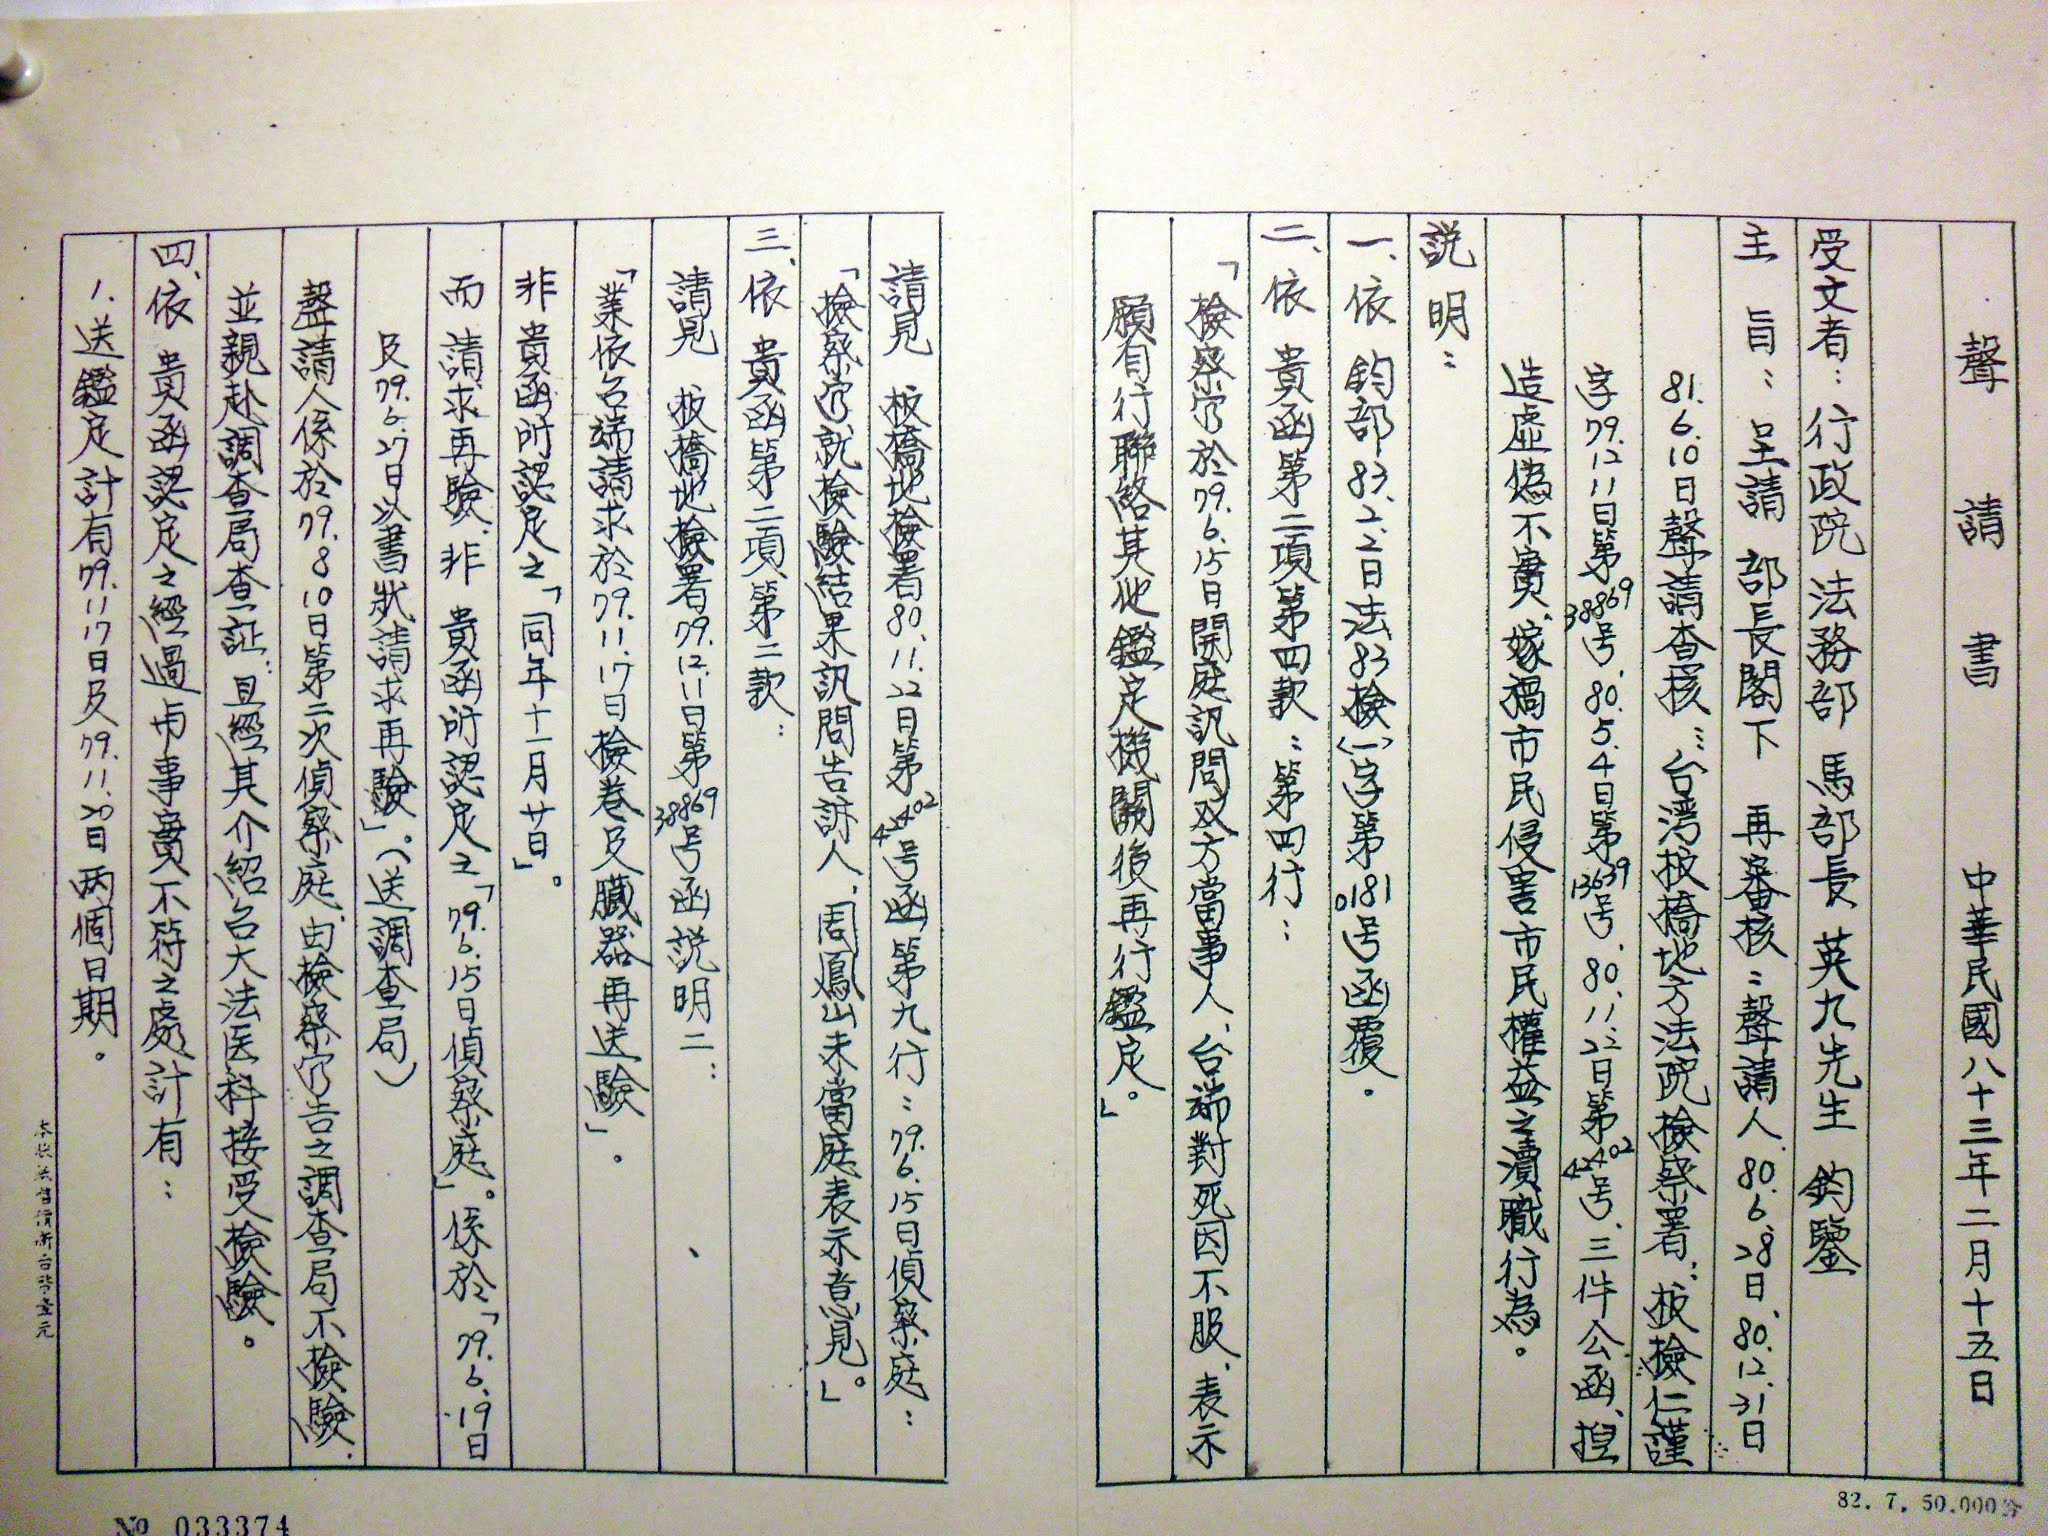 聲請書 中華民國八十三年二月十五日
受文者：行政院法務部 馬部長英九先生 鈞鑒
主旨：呈請 部長閣下 再審核：聲請人.80.6.28日.80.12.31日
81.6.10日聲請查核：台灣板橋地方法院檢察署：板檢仁謹
字79.12.11日第38869号.80.5.4日第13639号.80.11.22日第42402号、三件公函、揑
造虛偽不實、嫁禍市民侵害市民權益之瀆職行為。
説明：
一、依 鈞部83.2.2日法83檢〈一〉字第0181号函覆。
二、依 貴函第二項第四款：第四行：
「檢察官於79.6.15日開庭訊問双方當事人、台端對死因不服、表示
願有行聯絡其他鑑定機關後再行鑑定。」
請見 板橋地檢署80.11.22日第42402号函第九行：79.6.15日偵察庭：
「檢察官就檢驗結果訊問告訴人、周鳳山未當庭表示意見。」
三、依 貴函第二項第二款：
請見 板橋地檢署79.12.11日第38869号函説明二：
「業依台端請求於79.11.17日檢卷及臟器再送驗」。
非 貴函所認定之「同年十一月廿日」。
而請求再驗.非 貴函所認定之「79.6.15日偵察庭」。係於「79.6.19日
及79.6.27日以書狀請求再驗」。(送調查局)
聲請人係於79.8.10日第二次偵察庭、由檢察官告之調查局不檢驗.
並親赴調查局查証：且經其介紹台大法医科接受檢驗。
四、依 貴函認定之經過与事實不符之處計有：
1.送鑑定計有79.11.17日及79.11.20日两個日期。
82.7.50.000份
№ 033374